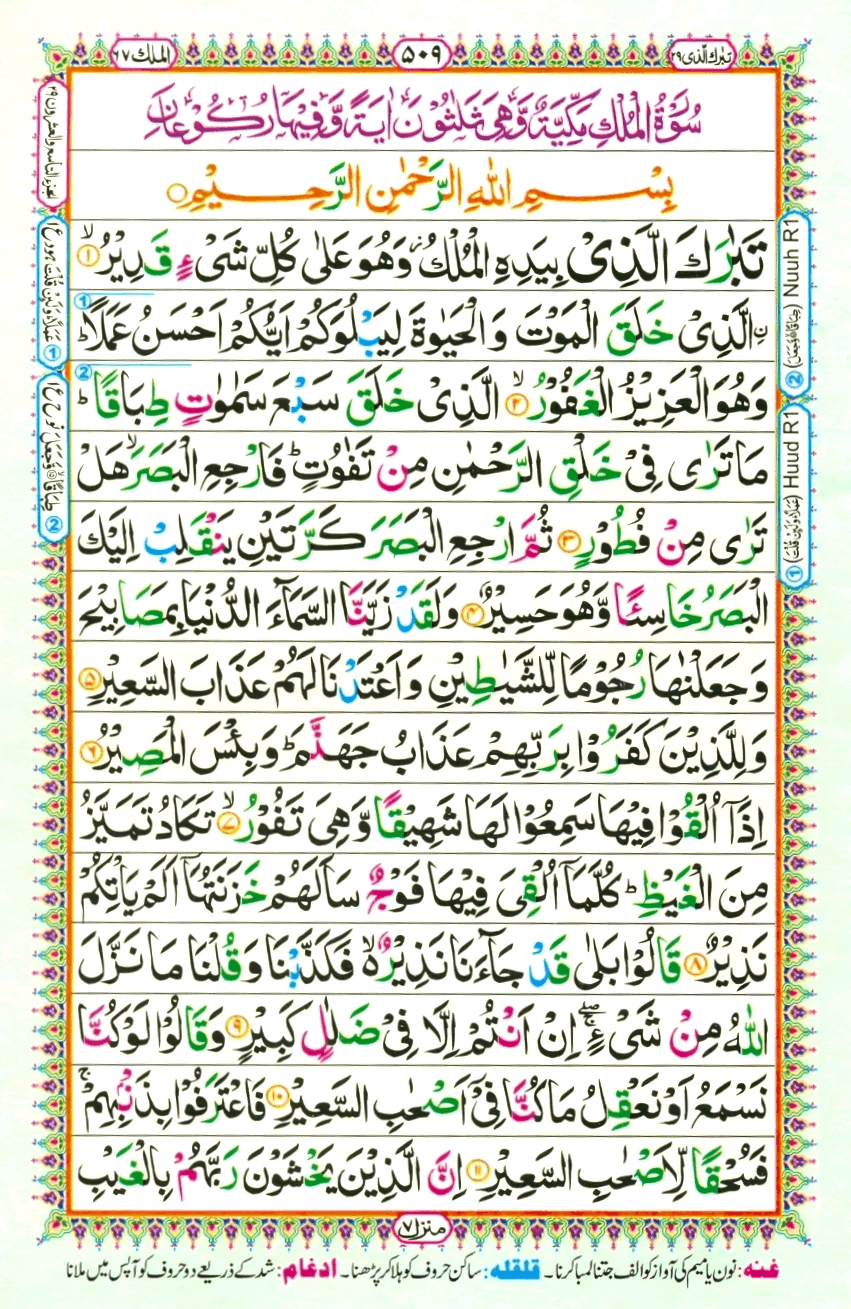 تبٰرك الذی ۲۹
۵۰۹
الملك ۶۷
سُوْرَةُ الْمُلْكِ مَكِّيَّةٌ وَّهِيَ ثَلٰثُوْنَ اٰيَةً وَّفِيْهَا رُكُوْعَانِ
بِسْمِ اللّٰهِ الرَّحْمٰنِ الرَّحِيْمِ ○
تَبٰرَكَ الَّذِیْ بِیَدِهِ الْمُلْكُ٘ وَهُوَ عَلٰی كُلِّ شَیْءٍ قَدِیْرُۙ ۝۱
ِ۟الَّذِیْ خَلَقَ الْمَوْتَ وَالْحَیٰوةَ لِیَبْلُوَكُمْ اَیُّكُمْ اَحْسَنُ عَمَلًا ؕ
وَهُوَ الْعَزِیْزُ الْغَفُوْرُۙ ۝۲ الَّذِیْ خَلَقَ سَبْعَ سَمٰوٰتٍ طِبَاقًا ؕ
مَا تَرٰی فِیْ خَلْقِ الرَّحْمٰنِ مِنْ تَفٰوُتٍ ؕ فَارْجِعِ الْبَصَرَ ۙ هَلْ
تَرٰی مِنْ فُطُوْرٍ ۝۳ ثُمَّ ارْجِعِ الْبَصَرَ كَرَّتَیْنِ یَنْقَلِبْ اِلَیْكَ
الْبَصَرُ خَاسِئًا وَّهُوَ حَسِیْرٌ ۝۴ وَلَقَدْ زَیَّنَّا السَّمَآءَ الدُّنْیَا بِمَصَابِیْحَ
وَجَعَلْنٰهَا رُجُوْمًا لِّلشَّیٰطِیْنِ وَاَعْتَدْنَا لَهُمْ عَذَابَ السَّعِیْرِ ۝۵
وَلِلَّذِیْنَ كَفَرُوْا بِرَبِّهِمْ عَذَابُ جَهَنَّمَ ؕ وَبِئْسَ الْمَصِیْرُ ۝۶
اِذَاۤ اُلْقُوْا فِیْهَا سَمِعُوْا لَهَا شَهِیْقًا وَّهِیَ تَفُوْرُۙ ۝۷ تَكَادُ تَمَیَّزُ
مِنَ الْغَیْظِ ؕ كُلَّمَاۤ اُلْقِیَ فِیْهَا فَوْجٌ سَاَلَهُمْ خَزَنَتُهَاۤ اَلَمْ یَاْتِكُمْ
نَذِیْرٌ ۝۸ قَالُوْا بَلٰی قَدْ جَآءَنَا نَذِیْرٌ ۙ۬ فَكَذَّبْنَا وَقُلْنَا مَا نَزَّلَ
اللّٰهُ مِنْ شَیْءٍ ۖۚ اِنْ اَنْتُمْ اِلَّا فِیْ ضَلٰلٍ كَبِیْرٍ ۝۹ وَقَالُوْا لَوْ كُنَّا
نَسْمَعُ اَوْ نَعْقِلُ مَا كُنَّا فِیْۤ اَصْحٰبِ السَّعِیْرِ ۝۱۰ فَاعْتَرَفُوْا بِذَنْۢبِهِمْ ۚ
فَسُحْقًا لِّاَصْحٰبِ السَّعِیْرِ ۝۱۱ اِنَّ الَّذِیْنَ یَخْشَوْنَ رَبَّهُمْ بِالْغَیْبِ
منزل ۷
غنه: نون یا میم کی آواز کو الف جتنا لمبا کرنا۔ قلقله: ساکن حروف کو ہلا کر پڑھنا۔ ادغام: شد کے ذریعے دو حروف کو آپس میں ملانا
الجزء التاسع والعشرون ۲۹
Nuuh R1
Huud R1